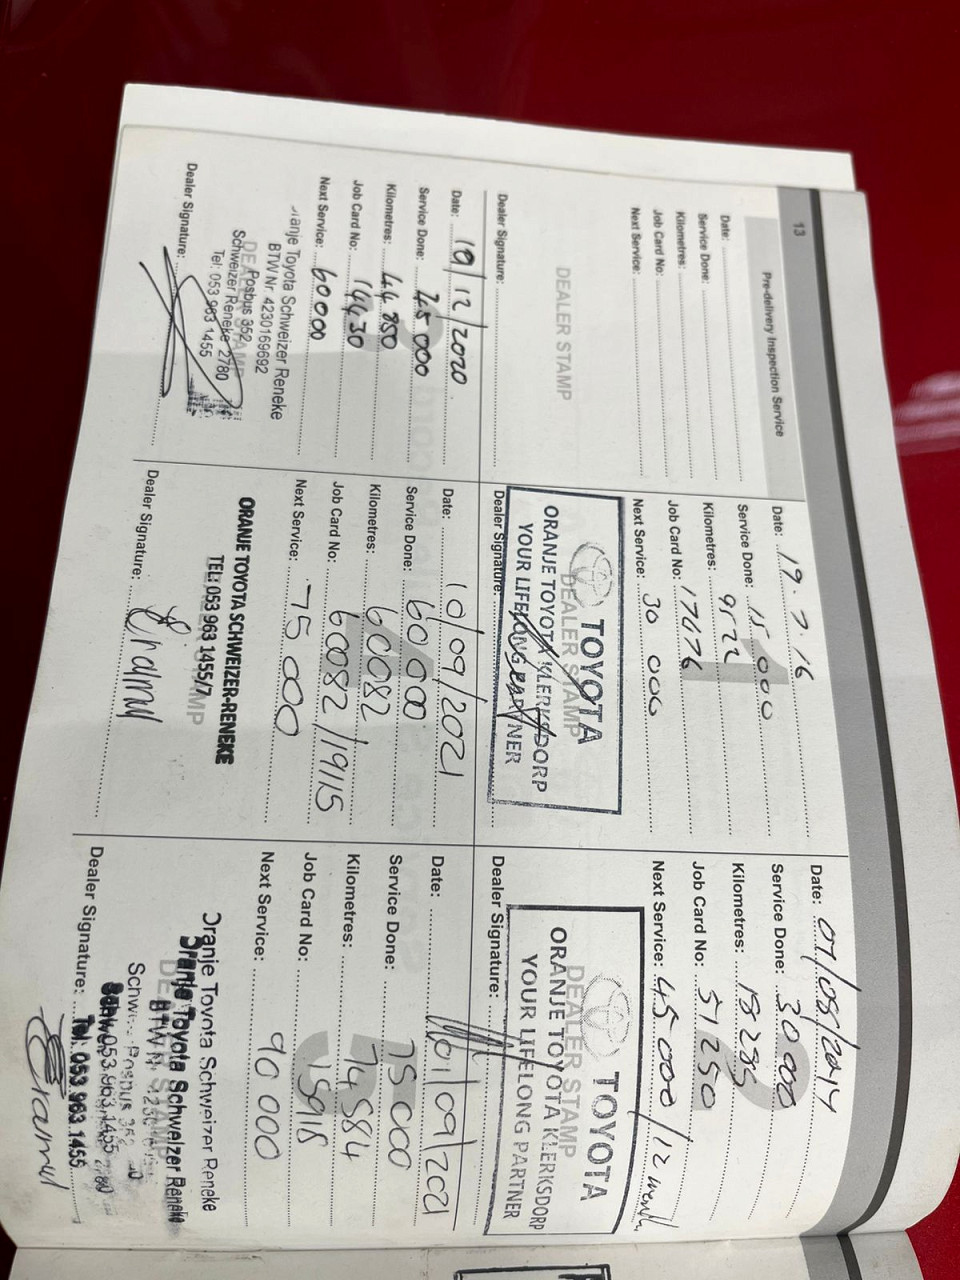 13
Pre-delivery Inspection Service
Date:
Service Done:
Kilometres:
Job Card No:
Next Service:
DEALER STAMP
Dealer Signature:
1
Date: 19.7.16
Service Done: 15 000
Kilometres: 9522
Job Card No: 17676
Next Service: 30 000
DEALER STAMP
TOYOTA
ORANJE TOYOTA KLERKSDORP
YOUR LIFELONG PARTNER
Dealer Signature:
2
Date: 07/08/2017
Service Done: 30 000
Kilometres: 18285
Job Card No: 51250
Next Service: 45 000 / 12 month
DEALER STAMP
TOYOTA
ORANJE TOYOTA KLERKSDORP
YOUR LIFELONG PARTNER
Dealer Signature:
Date: 10/12/2020
Service Done: 45 000
Kilometres: 44 850
Job Card No: 14430
Next Service: 60 000
DEALER STAMP
Oranje Toyota Schweizer Reneke
BTW Nr 4230169692
Posbus 352
Schweizer Reneke 2780
Tel: 053 963 1455
Dealer Signature:
4
Date: 10/09/2021
Service Done: 60 000
Kilometres: 60082
Job Card No: 60082/19115
Next Service: 75 000
ORANJE TOYOTA SCHWEIZER-RENEKE
TEL: 053 963 1455/7
Dealer Signature:
5
Date: 01/09/202
Service Done: 75 000
Kilometres: 74 584
Job Card No: 15918
Next Service: 90 000
Oranje Toyota Schweizer Reneke
Oranje Toyota Schweizer Reneke
Posbus 352
Tel: 053 963 1455
Dealer Signature: